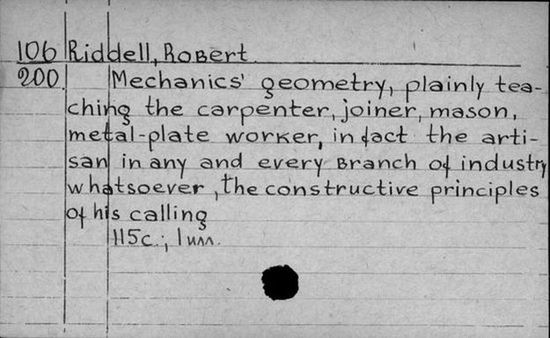 106 Riddell, Robert
200. Mechanics' geometry, plainly tea-
ching the carpenter, joiner, mason,
metal-plate worker, in fact the arti-
san in any and every branch of industry
whatsoever, the constructive principles
of his calling
115с.; 1 илл.